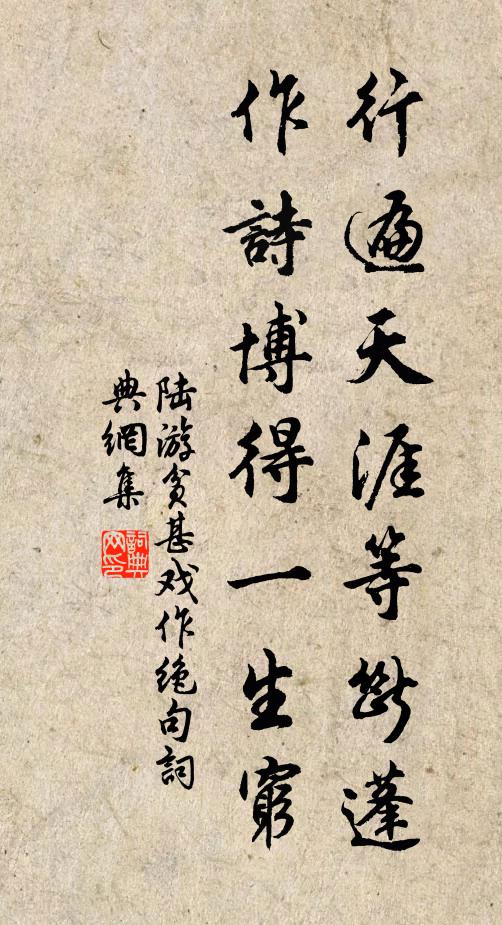 行遍天涯等斷蓬
作詩博得一生窮
陆游貧甚戏作绝句詞
典網集
詞典网印